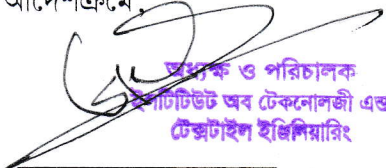 আদেশক্রমে,
অধ্যক্ষ ও পরিচালক
ইনস্টিটিউট অব টেকনোলজী এন্ড
টেক্সটাইল ইঞ্জিনিয়ারিং